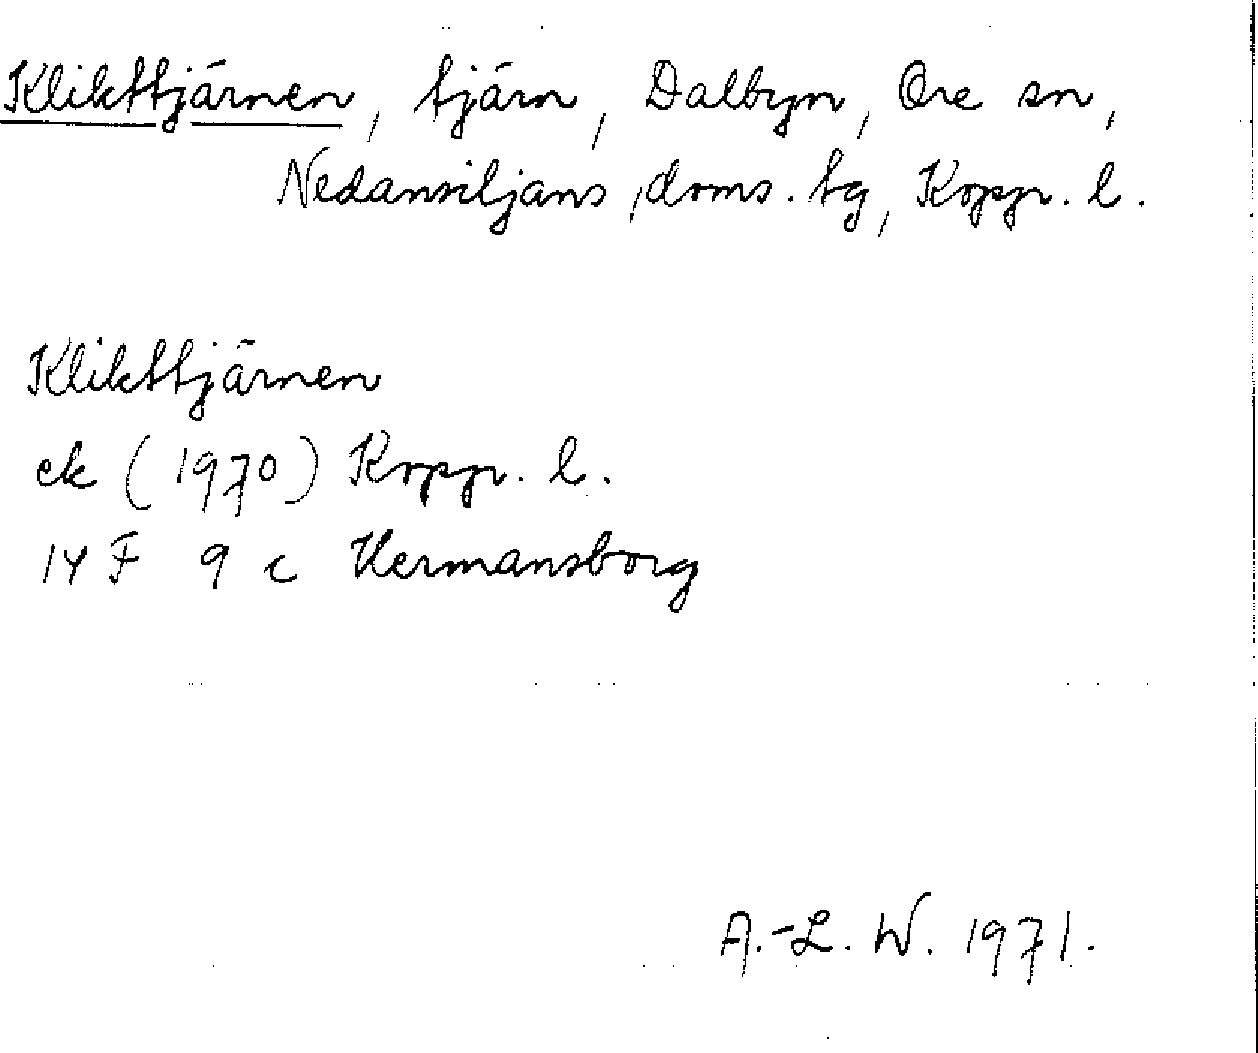 Klikttjärnen, tjärn, Dalbyn, Ore sn,
Nedansiljans doms. tg, Koppr. l.
Klikttjärnen
ek (1970) Koppr. l.
14 F 9 c Hermansborg
A.-L. W. 1971.